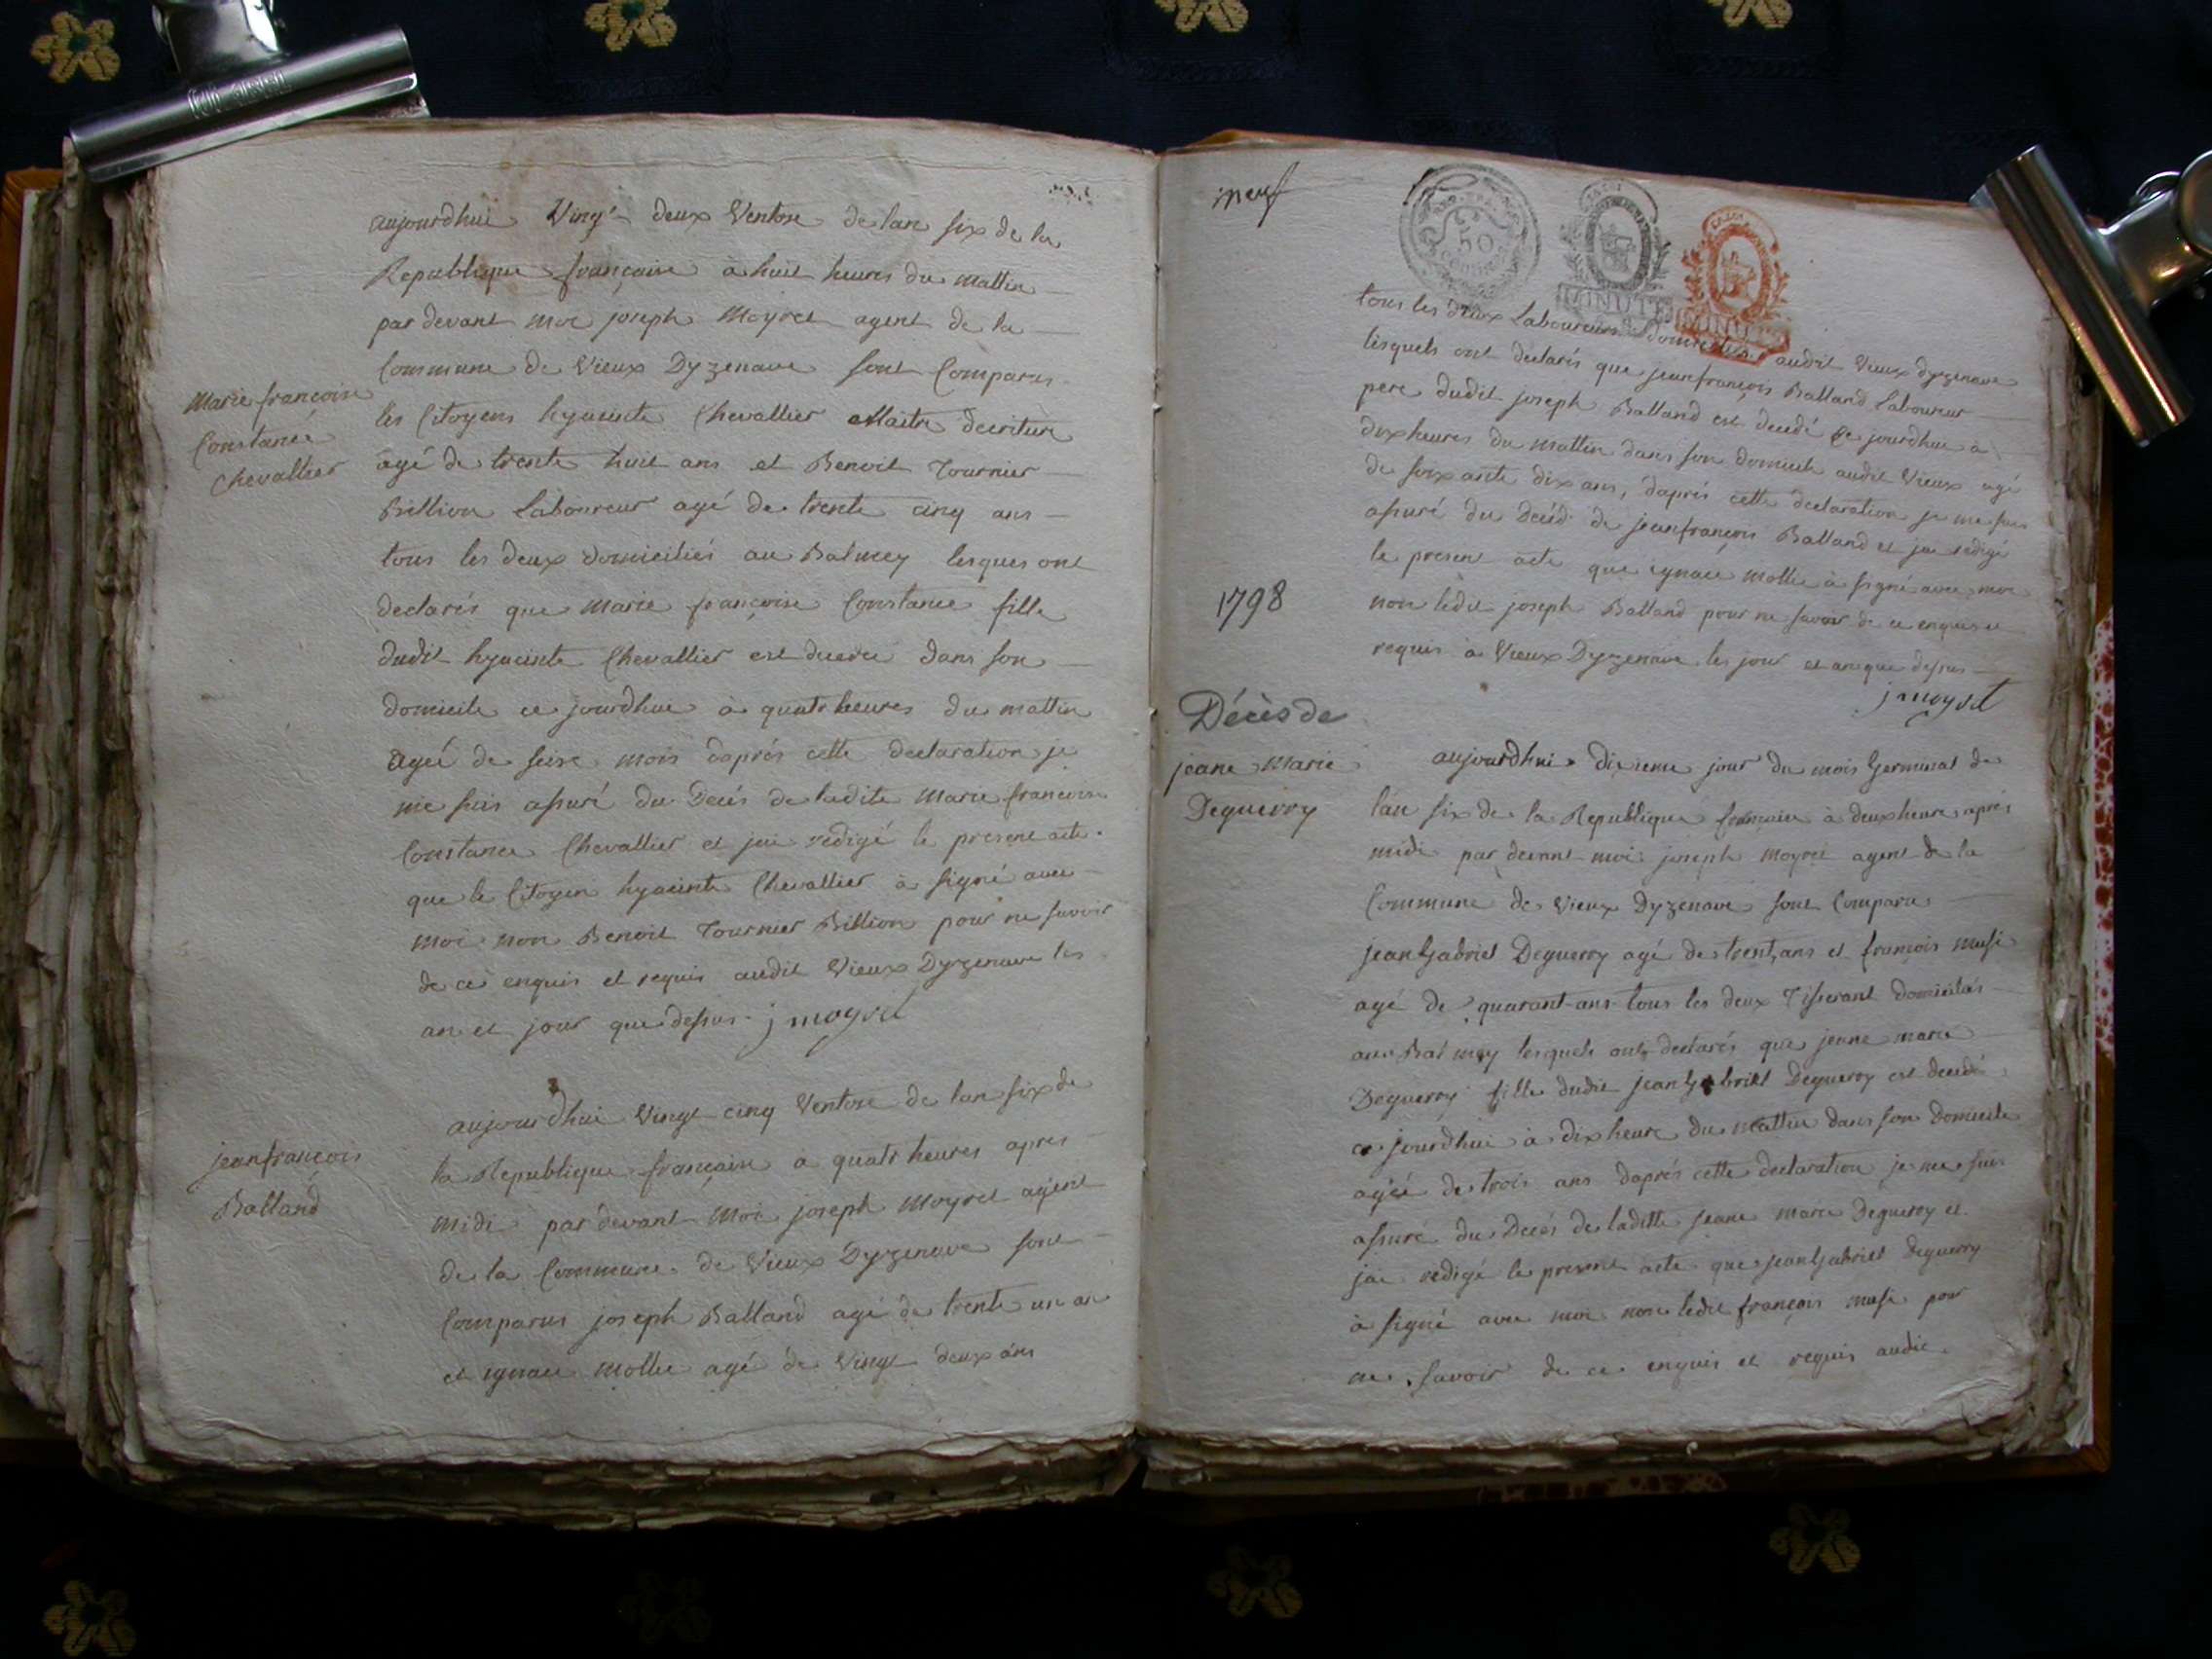 aujourdhui Vingt deux Ventose de lan six de la
Republique françaire à huit heures du mattin
par devant moi joseph Moyret agent de la
Commune de Vieux Dyzenave sont Comparus
Marie françoise
Constance
Chevallier
les Citoyens hyacinte Chevallier Maitre decriture
agé de trente huit ans et Benoit Tournier
Billion Laboureur agé de trente cinq ans
tous les deux domiciliés au Balmey lesques ont
declarés que Marie françoise Constance fille
dudit hyacinte Chevallier est decedé dans son
domicile ce jourdhui à quatr heures du mattin
agée de seise mois daprés cette declaration je
me suis assuré du Decés de ladite Marie francoise
Constance Chevallier et jai redigé le present acte
que le Citoyen hyacinte Chevallier à signé avec
moi non Benoit Tournier Billion pour ne savoir
de ce enquis et requis audit Vieux Dyzenave les
an et jour que dessus. j moyret
jeanfrançois
Balland
aujourdhui Vingt cinq Ventose de lan six de
la Republique françaire a quatr heures apres
midi par devant moi joseph Moyret agent
de la Commune de Vieux Dyzenave sont
Comparus joseph Balland agé de trente un an
et ignace mollie agé de Vingt deux ans
neuf
50
CENTIMES
MINUTE
MINUTE
tous les deux Laboureurs domiciliés audit Vieux dyzenave
lesquels ont declarés que jeanfrançois Balland Laboureur
pere dudit joseph Balland est decedé ce jourdhui à
dix heures du mattin dans son domicile audit Vieux agé
de soixante dix ans, daprés cette declaration je me suis
assuré du Decéd de jeanfrançois Balland et jai redigé
le present acte que ignace mollie à signé avec moi
1798
non ledit joseph Balland pour ne savoir de ce enquis et
requis à Vieux Dyzenave les jour et an que dessus
j moyret
Décès de
jeane Marie
Deguerry
aujourdhui dixieme jour du mois Germinal de
lan six de la Republique françaire à deux heures aprés
midi par devant moi joseph Moyret agent de la
Commune de Vieux Dyzenave sont Comparu
jean Gabriel Deguerry agé de trent,ans et françois musi
agé de quarant ans tous les deux Tisserant domiciliés
au Balmey lesquels ont declarés que jeane marie
Deguerry fille dudit jean Gabriel Deguerry est decedé
ce jourdhui à dix heure du mattin dans son Domicile
agée de trois ans daprés cette declaration je me suis
assuré du Decés de laditte jeane marie Deguerry et
jai redigé le present acte que jean Gabriel Deguerry
à signé avec moi non ledit françois musi pour
ne savoir de ce enquis et requis audit